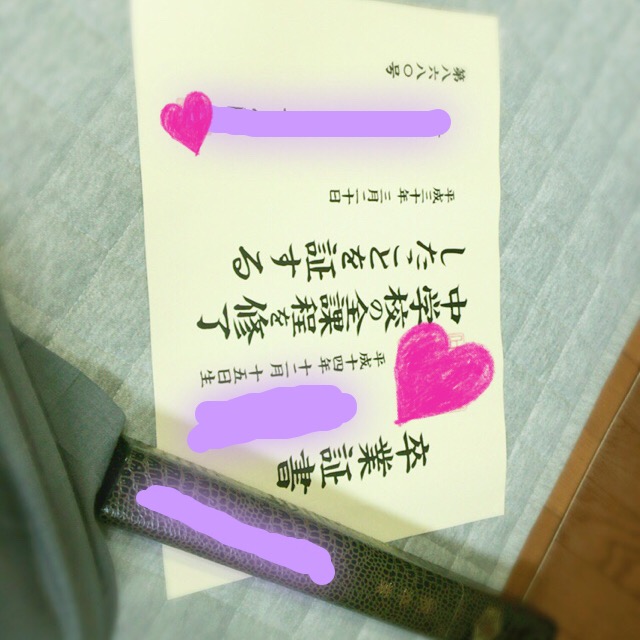 卒業証書
平成十四年十二月十五日生
中学校の全課程を修了
したことを証する
平成三十年三月二十日
第八六八〇号